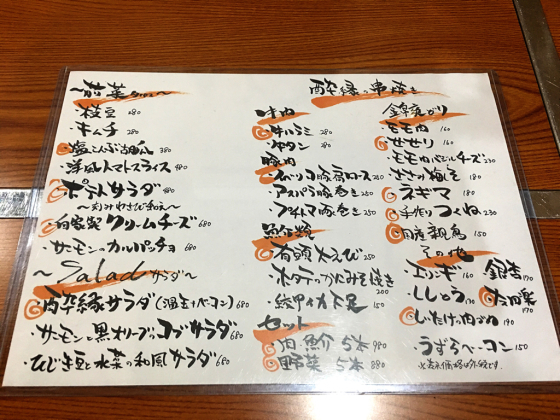 ～前菜
・枝豆 280
・キムチ 280
塩こんぶ
・洋風トマトスライス 480
ポテトサラダ 480
～刻みわさび和え～
自家製クリームチーズ 680
・サーモンのカルパッチョ 680
～Saladサラダ～
酔縁サラダ(温玉+ベーコン) 680
・サーモンと黒オリーブのコブサラダ 680
・ひじき豆と水菜の和風サラダ 680
酔縁の串焼き
牛肉
牛ハラミ 280
・牛タン 280
豚肉
イベリコ豚肩ロース 250
・アスパラ豚巻き 250
・プチトマ豚巻き 250
魚介焼
有頭大えび 250
・ホタテのかにみそ焼き 200
150
セット
肉・魚介 5本 980
・野菜 5本 880
・モモ肉 160
せせり 160
・モモ肉バジルチーズ 230
・ささみ梅しそ 180
ネギマ 180
手作りつくね 230
国産親鳥 150
その他
・エリンギ 160
・ししとう 170
しいたけの肉づめ 190
・うずらベーコン 150
銀杏 170
170
※表示価格は外税です。